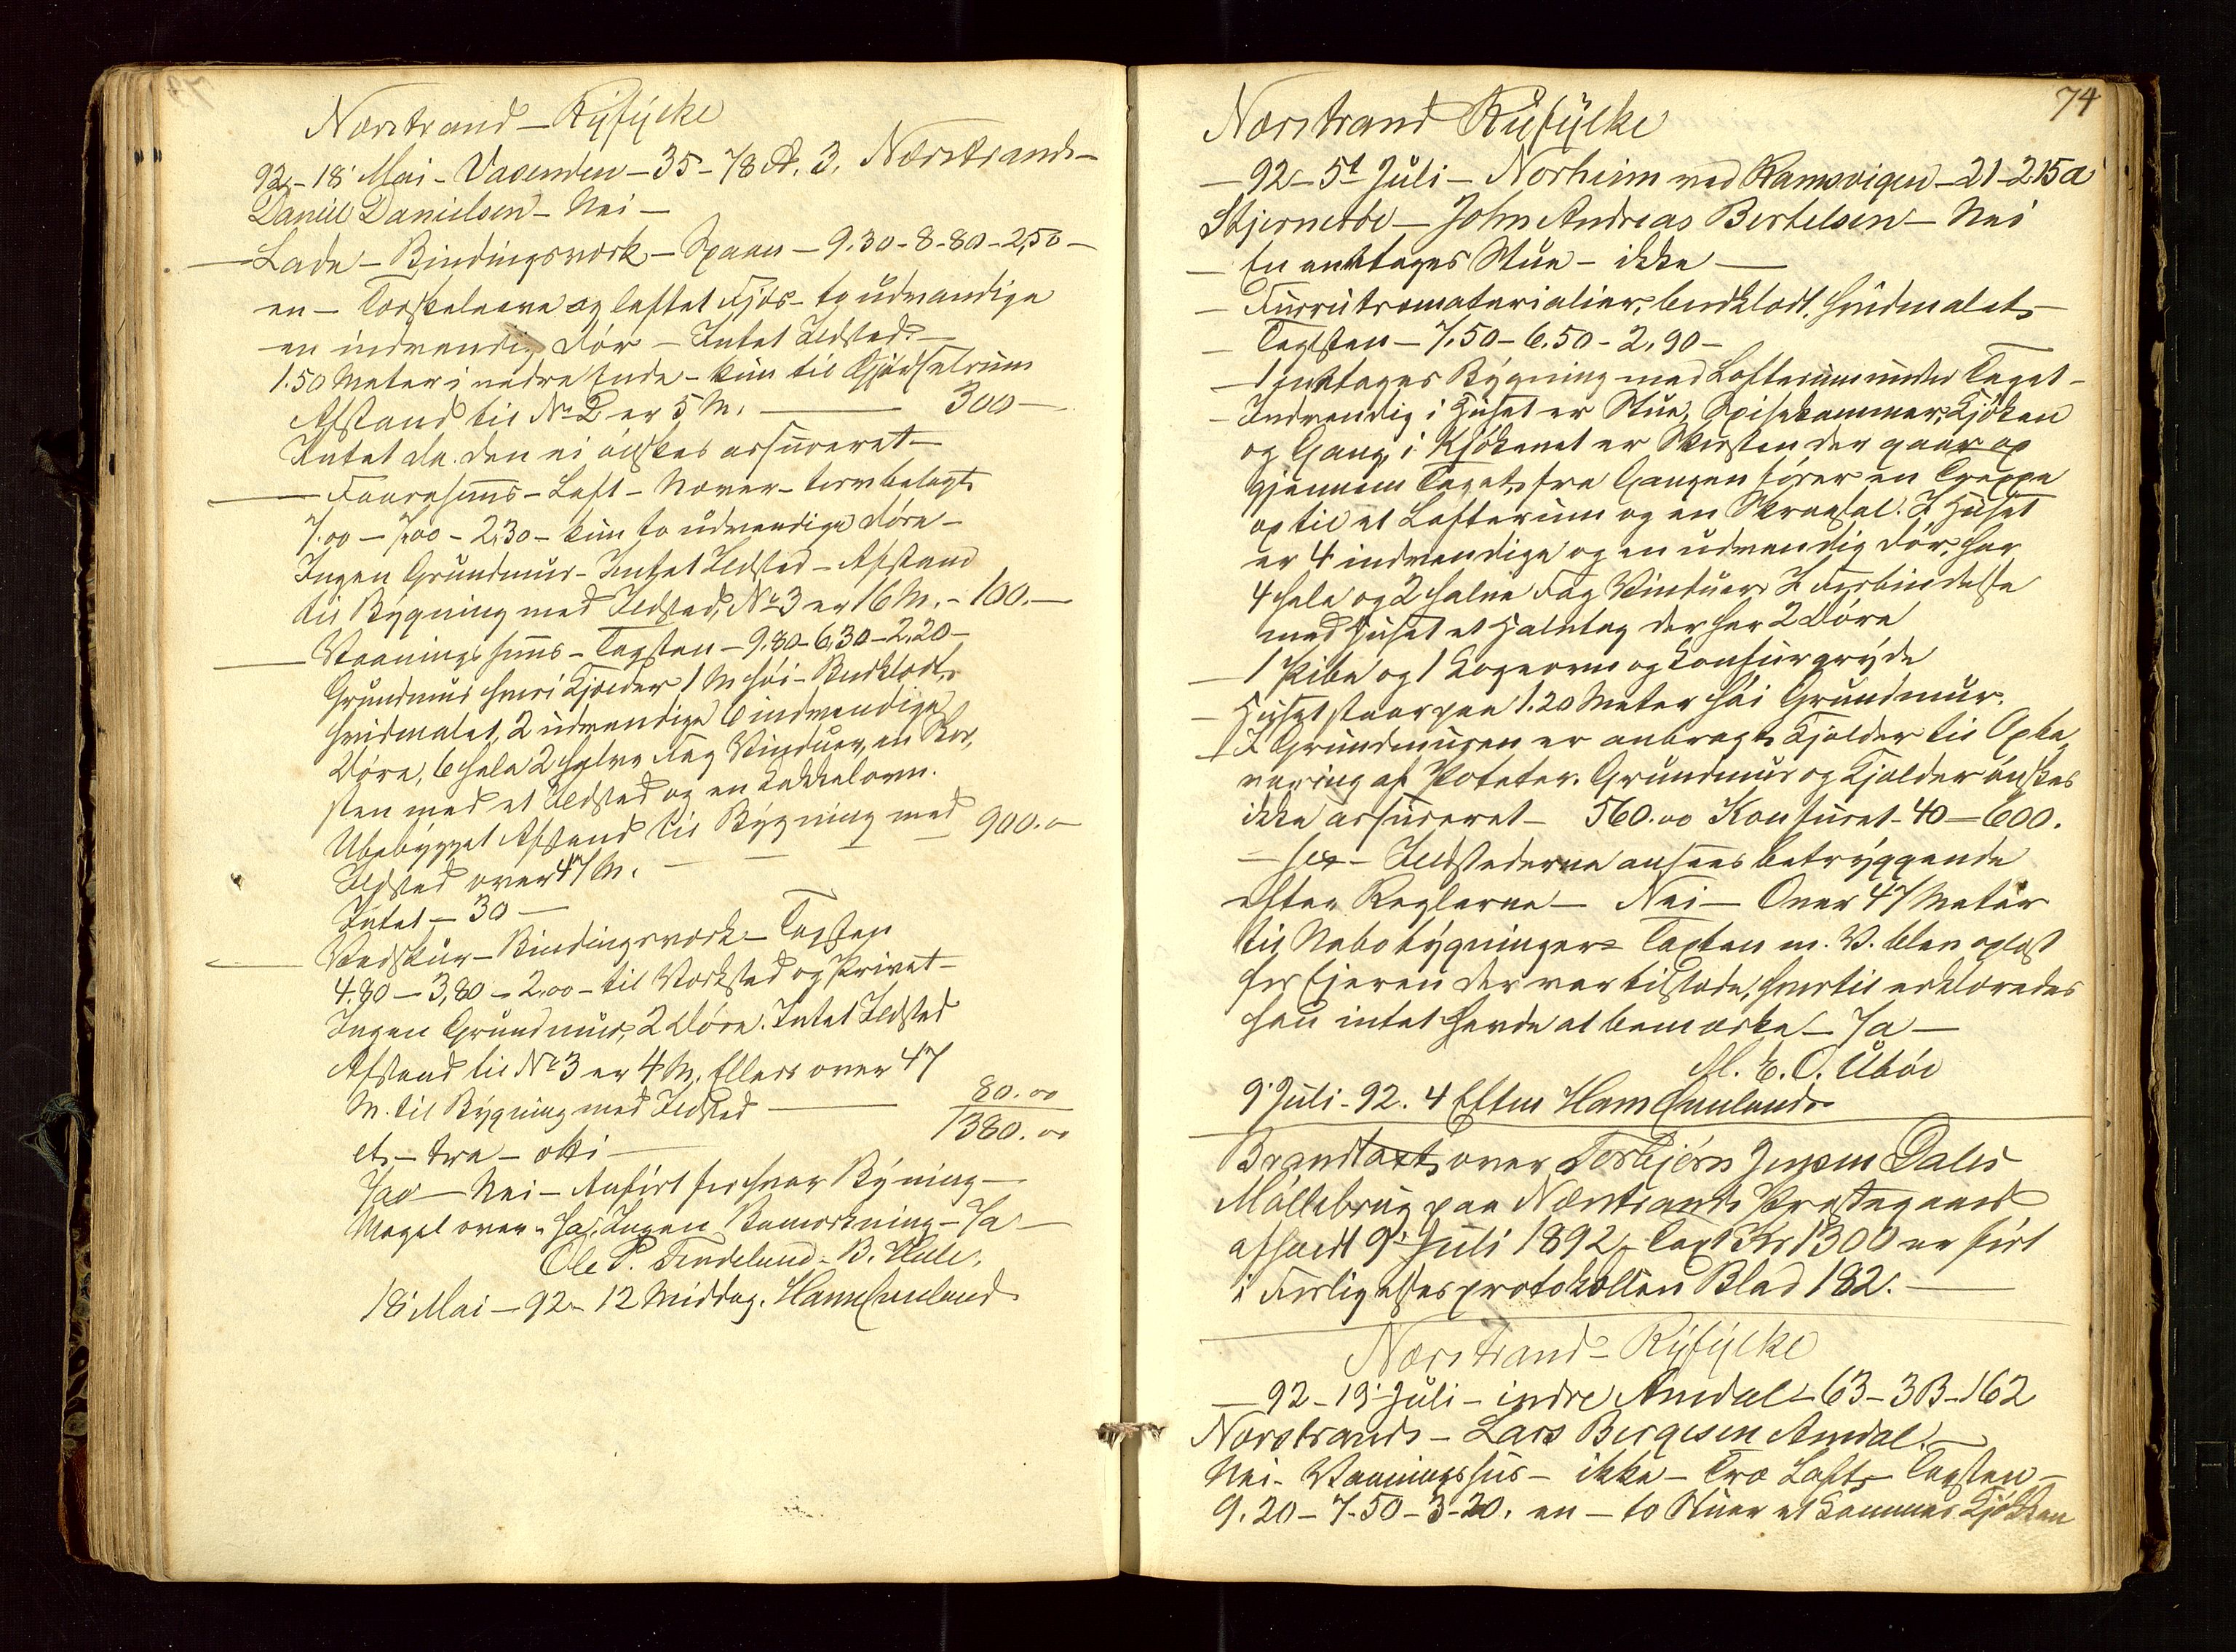 Nærstrand – Ryfylke
92 – 18' Mai – Vaaenden – 35 – 78 A. 3. Nærstrand –
Daniel Danielsen – Nei –
Lade – Bindingsværk – Spaan – 9.30 – 8.80 – 2,50 –
en – Torskelaave og loftet Fjøs – to udvendige
en indvendig Dør – Intet Ildsted. –
1.50 Meter i nedre Ende – kun til Gjødselrum
Afstand til No 2 er 5 M. – 300 –
Intet da den ei ønskes assureret –
Faarehuus – Loft – Næver – tørvbelagt
7.00 – 7.00 – 2.30 – kun to udvendige Døre –
Ingen Grundmur – Intet Ildsted – Afstand
til Bygning med Ildsted, No 3 er 16 M. – 100. –
Vaaningshuus – Tagsten – 9.80 – 6,30 – 2.20 –
Grundmur hvori Kjælder 1 M høi – Bordklædt,
hvidmalet, 2 udvendige 6 indvendige
Døre, 6 hele 2 halve Fag Vinduer, en Skor,
sten med et Ildsted og en Kakkelovn.
Ubebygget Afstand til Bygning med 900.0
Ildsted over 47 M. –
Intet – 30 –
Vedskur – Bindingsværk – Tagsten
4.80 – 3,80 – 2.00 – til Værksted og Privet –
Ingen Grundmur, 2 Døre. Intet Ildsted
Afstand til No 3 er 4 M. Ellers over 47
M. til Bygning med Ildsted – 80.00
1380.00
et – tra – otti –
Ja – Nei – Anført for hver Bygning –
Meget over – Ja, Ingen Bemærkning – Ja –
Ole P. Tindeland – B. Hule.
18' Mai – 92 – 12 Middag. Hans
74
Nærstrand Ryfylke
– 92 – 5t Juli – Norheim ved Ramsvigen – 21 – 215 a
Stjernerøe – John Andreas Bertelsen – Nei
– En enetages Stue – ikke –
– Furrutræmaterialier, bordklædt, hvidmalet,
– Tagsten – 7,50 – 6.50 – 2,90 –
– 1 enetages Bygning med Lofterum under Taget –
– Indvendig i Huset er Stue, Spisekammer, Kjøken
og Gang, i Kjøkenet er Skorsten der gaar op
gjennem Taget, fra Gangen fører en Trappe
op til et Lofterum og en Skraasal. I Huset
er 4 indvendige og en udvendig Dør, har
4 hele og 2 halve Fag Vinduer. I Forbindelse
med Huset et Halvtag der har 2 Døre
– 1 Pibe og 1 Kogeovn og Konfurgryde
– Huset staar paa 1.20 Meter høi Grundmur.
– I Grundmuren er anbragt Kjelder til Opbe
varing af Poteter. Grundmur og Kjelder ønskes
ikke assureret – 560.00 Konfuret – 40 – 600.
– sex – Ildstederne ansees betryggende
efter Reglerne – Nei – Over 47 Meter
til Nabobygninger – Taxten m. V. blev oplæst
for Eieren der var tilstede, hvortil erklæredes
han intet havde at bemærke – Ja –
M. E. O. Ubøe
9' Juli – 92. 4 Efterm Hans
Brandtaxt, over Torbjørn Jensen Dales
Møllebrug paa Nærstrands Prestegaard
afholdt 9' Juli 1892, Taxt Kr 1300 er ført
i Forligelsesprotokollen Blad 182. –
Nærstrand – Ryfylke
– 92 – 19' Juli – indre Amdal – 63 – 3 B – 162
Nærstrands – Lars Bergesen Amdal –
Nei – Vaaningshus – ikke – Træ Loft – Tagsten –
9.20 – 7.50 – 3.20. en – to Stuer et Kammer Kjøkken